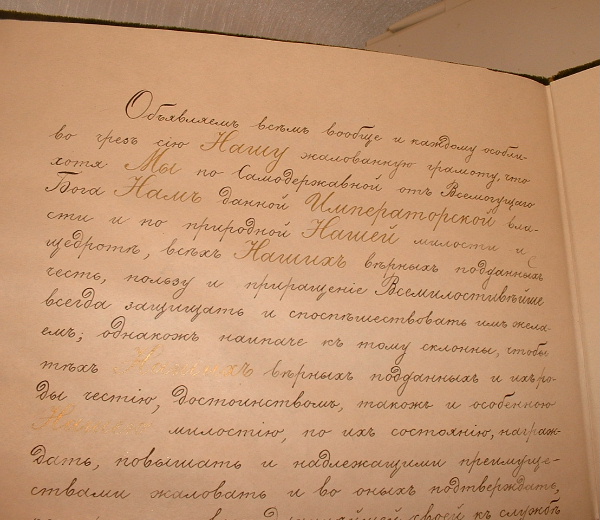 Объявляемъ всѣмъ вообще и каждому особли-
во чрезъ сію Нашу жалованную грамоту, что
хотя Мы по Самодержавной отъ Всемогущаго
Бога Намъ данной Императорской вла-
сти и по природной Нашей милости и
щедротѣ, всѣхъ Нашихъ вѣрныхъ подданныхъ
честь, пользу и приращеніе Всемилостивѣйше
всегда защищать и споспѣшествовать имъ жела-
емъ; однакожъ наипаче къ тому склонны, чтобы
тѣхъ Нашихъ вѣрныхъ подданныхъ и ихъ ро-
ды честію, достоинствомъ, такожъ и особенною
Нашею милостію, по ихъ состоянію, награж-
дать, повышать и надлежащими преимуще-
ствами жаловать и во оныхъ подтверждать,
своей къ службѣ